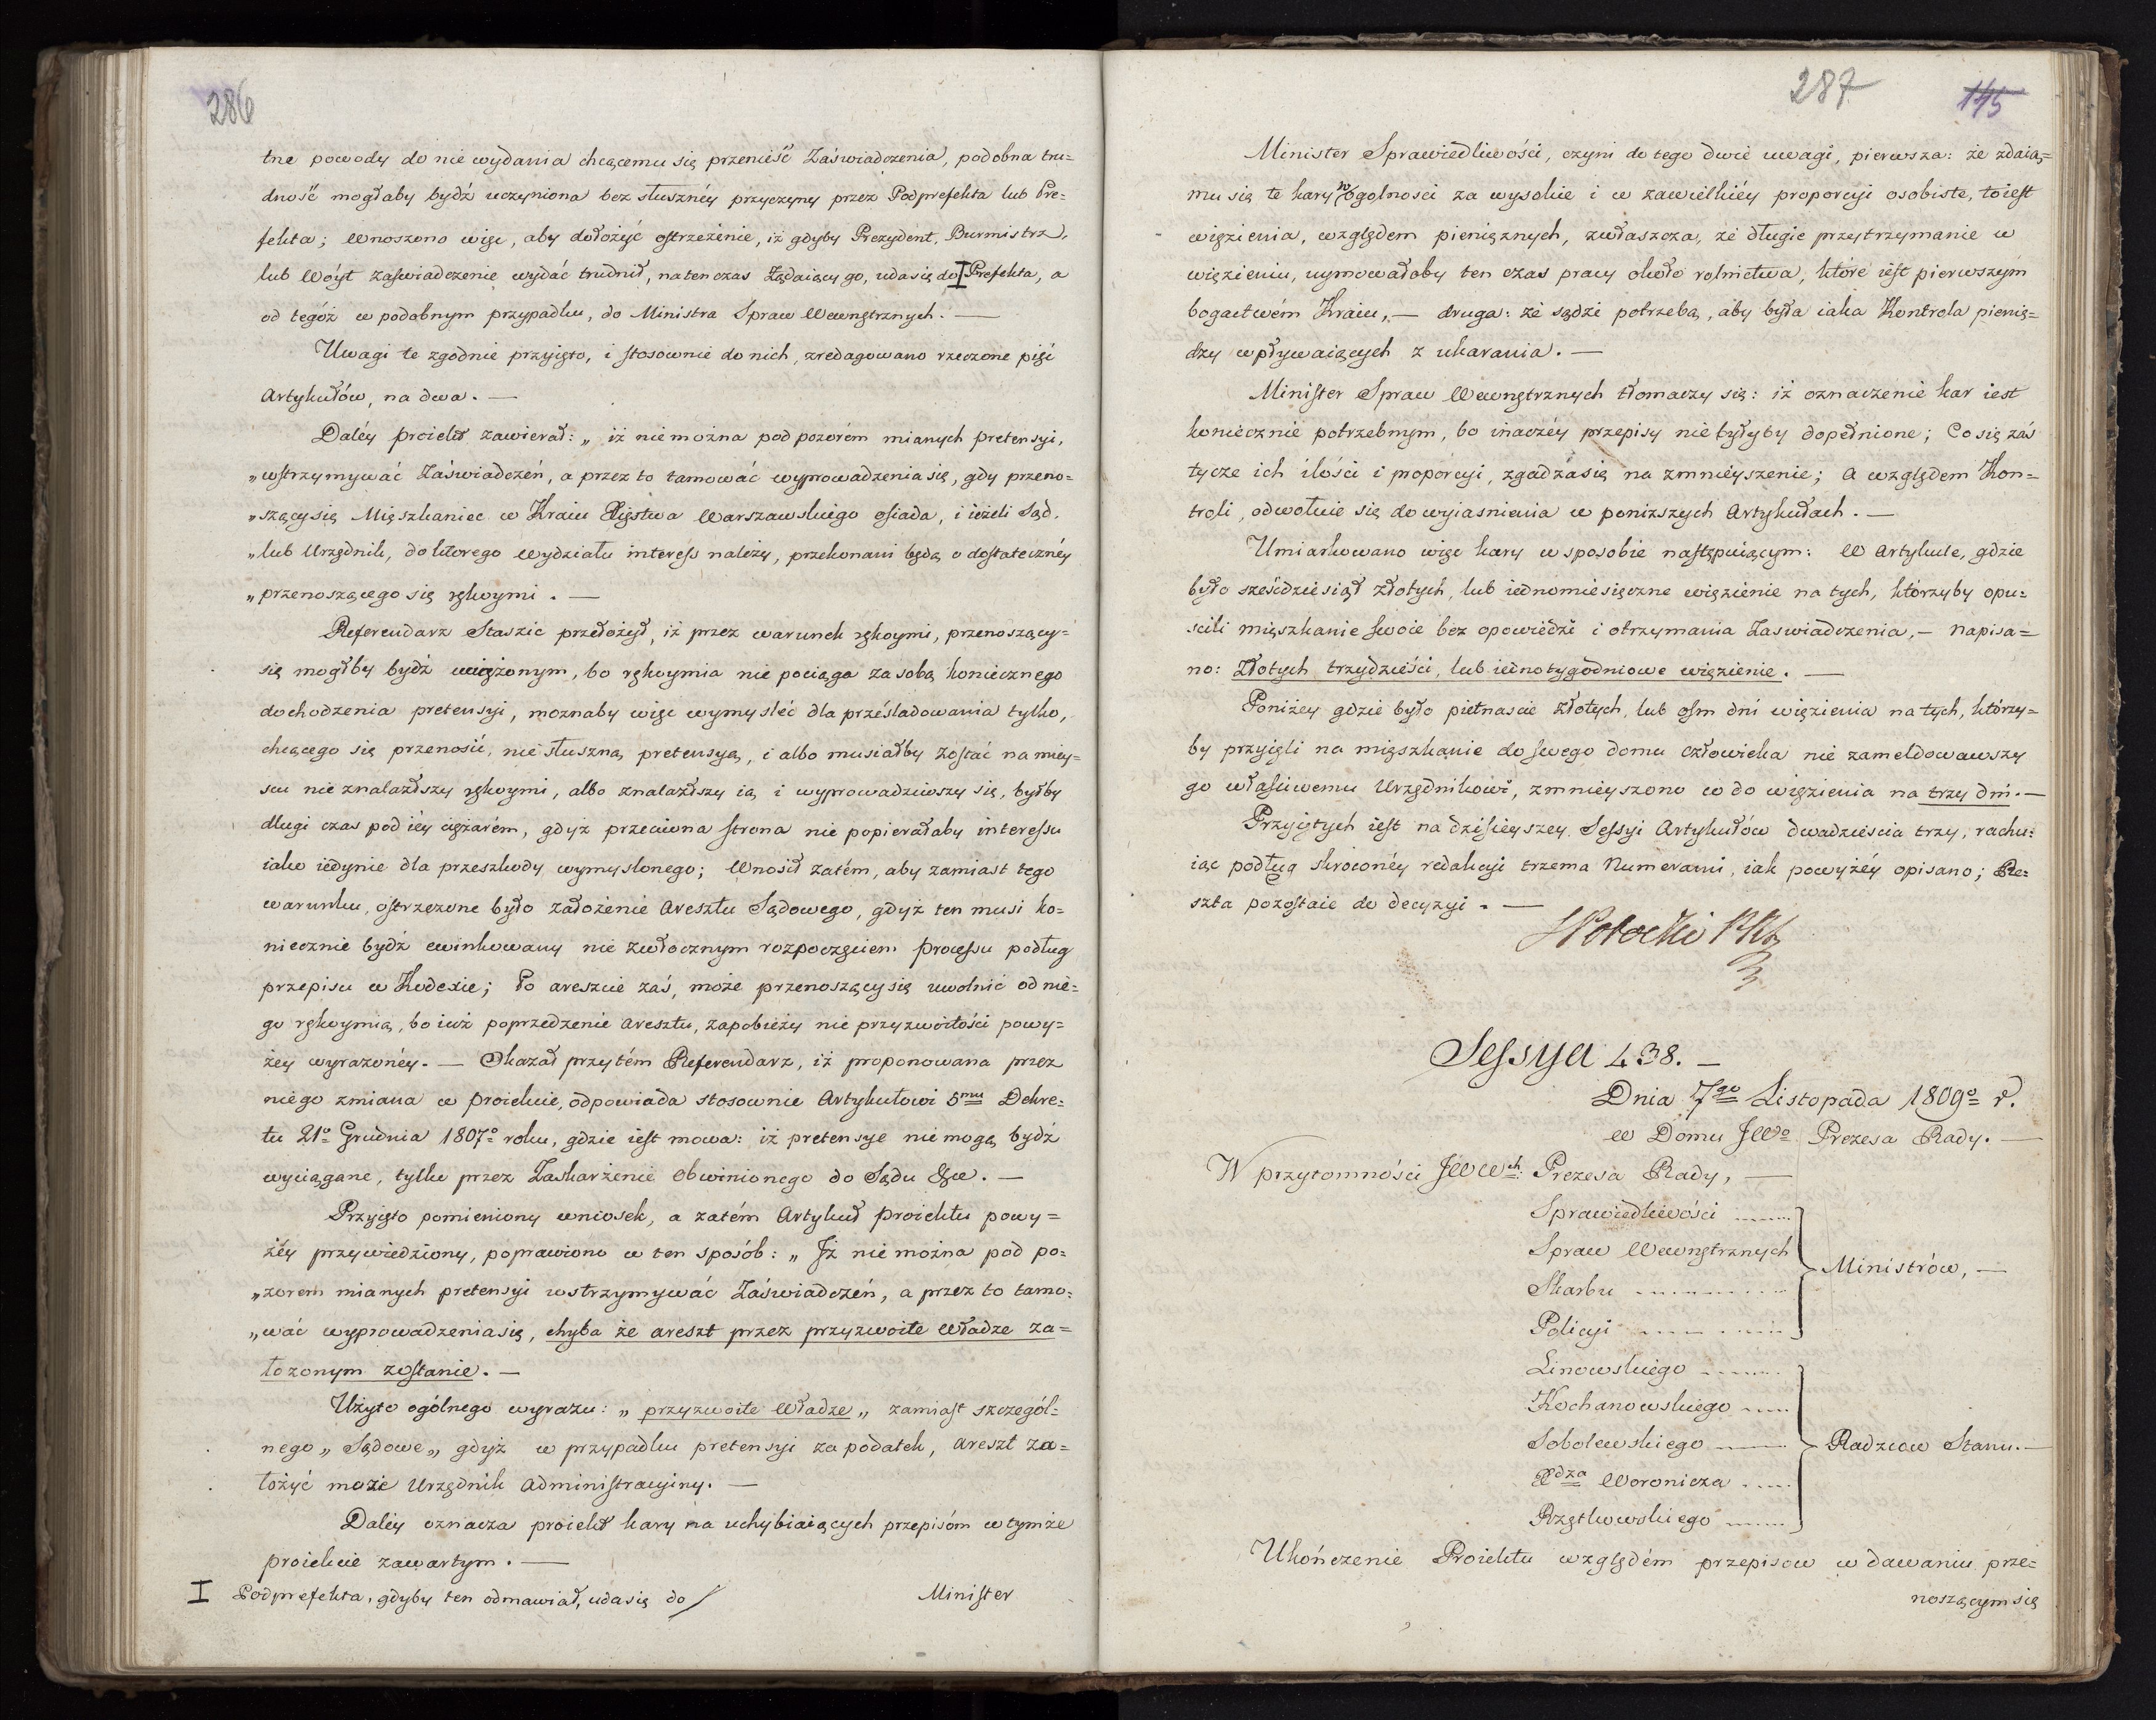 286
tne powody do nie wydania chcącemu się przenieść Zaświadczenia, podobna tru=
dność mogłaby bydź uczyniona bez słusznéy przyczyny przez Podprefekta lub Pre=
fekta; Wnoszono więc, aby dołożyć ostrzeżenie, iż gdyby Prezydent, Burmistrz,
lub Wóyt zaświadczenie wydać trudnił, natenczas Żądaiący go, uda się do I Prefekta, a
od tegóż w podobnym przypadku, do Ministra Spraw Wewnętrznych. —
Uwagi te zgodnie przyięto, i stosownie do nich, zredagowano rzeczone pięć
Artykułów, na dwa. —
Daléy proiekt zawierał: „ iż nie można pod pozorém mianych pretensyi,
„wstrzymywać Zaświadczeń, a przez to tamować wyprowadzenia się, gdy przeno=
„szący się Mięszkaniec w Kraiu Xięstwa Warszawskiego osiada, i ieżeli Sąd,
„lub Urzędnik, do ktorego Wydziału interess należy, przekonani będą o dostatecznéy
„przenoszącego się rękoymi. —
Referendarz Staszic przełożył, iż przez warunek rękoymi, przenoszący=
się mogłby bydź uciążonym, bo rękoymia nie pociąga za sobą koniecznego
dochodzenia pretensyi, moznaby więc wymysleć dla prześladowania tylko,
chcącego się przenosić, nie słuszną pretensyą, i albo musiałby zostać na miey=
scu nie znalazłszy rękoymi, albo znalazłszy ią i wyprowadziwszy się, byłby
długi czas pod iéy ciężarém, gdyż przeciwna strona nie popierałaby interessu
iako iedynie dla przeszkody wymyslonego; Wnosił zatém, aby zamiast tego
warunku, ostrzeżone było założenie Aresztu Sądowego, gdyż ten musi ko=
niecznie bydź ewinkowany nie zwłocznym rozpoczęciem processu podług
przepisu w Kodexie; Po areszcie zaś, może przenoszący się uwolnić od nie=
go rękoymią, bo iuż poprzedzenie Aresztu, zapobieży nie przyzwoitości powy=
żey wyrażonéy. — Okazał przytém Referendarz, iż proponowana przez
niego zmiana w proiekcie, odpowiada stosownie Artykułowi 5mu Dekre=
tu 21o Grudnia 1807o roku, gdzie iest mowa: iż pretensye nie mogą bydź
wyciągane, tylko przez Zaskarżenie Obwinionego do Sądu &ce. —
Przyięto pomieniony wniosek, a zatém Artykuł proiektu powy=
żéy przywiedziony, poprawiono w ten sposób: „ Iż nie można pod po=
„zorem mianych pretensyi wstrzymywać Zaświadczeń, a przez to tamo=
„wać wyprowadzenia się, chyba że areszt przez przyzwoite Władze za=
łozonym zostanie. —
Użyto ogólnego wyrazu: „ przyzwoite Władze „ zamiast szczegól=
nego „ Sądowe „ gdyż w przypadku pretensyi za podatek, Areszt za=
łożyć może Urzędnik Administracyiny. —
Daléy oznacza proiekt kary na uchybiaiących przepisóm w tymże
proiekcie zawartym. —
I Podprefekta, gdyby ten odmawiał, uda się do /
Minister
287
145
Minister Sprawiedliwości, czyni do tego dwie uwagi, pierwsza: że zdaią=
mu się te kary w ogolnosci za wysokie i w zawielkiéy proporcyi osobiste, toiest
więzienia, względem pienięznych, zwłaszcza, że długie przytrzymanie w
więzieniu, uymowałoby ten czas pracy około rolnictwa, które iest pierwszém
bogactwém Kraiu, — druga: że sądzi potrzebą, aby była iaka Kontrola pienię=
dzy wpływaiących z ukarania. —
Minister Spraw Wewnętrznych tłomaczy się: iż oznaczenie kar iest
koniecznie potrzebnym, bo inaczéy przepisy nie byłyby dopełnione; Co się zaś
tycze ich ilości i proporcyi, zgadza się na zmnieyszenie; A względem Kon=
troli, odwołuie się do wyiasnienia w ponizszych Artykułach. —
Umiarkowano więc kary w sposobie następuiącym: W Artykule, gdzie
było sześćdziesiąt Złotych, lub iednomiesięczne więzienie na tych, którzyby opu=
scili mięszkanie swoie bez opowiedzi i otrzymania Zaswiadczenia, — Napisa=
no: Złotych trzydzieści, lub iednotygodniowe więzienie. —
Poniżey gdzie było piętnascie Złotych, lub osm dni więzienia na tych, którzy=
by przyięli na mięszkanie do swego domu człowieka nie zameldowawszy
go własciwemu Urzędnikowi, zmnieyszono co do więzienia na trzy dni. —
Przyiętych iest na dzisieyszey Sessyi Artykułów dwadzieścia trzy, rachu=
iąc podług skróconéy redakcyi trzema Numerami, iak powyżéy opisano; Re=
szta pozostaie do decyzyi. —
SPotocki PRS
Sessya 438. —
Dnia 7go Listopada 1809o r.
W Domu JWo Prezesa Rady. —
W przytomności JWWch: Prezesa Rady, —
Sprawiedliwości
Spraw Wewnętrznych
Skarbu
Policyi
Ministrów, —
Linowskiego
Kochanowskiego
Sobolewskiego
Xdza Woronicza
Rzętkowskiego
Radzcow Stanu. —
Ukończenie Proiektu względém przepisow w dawaniu prze=
noszącym się